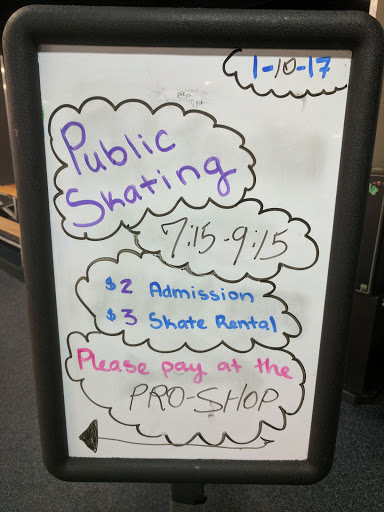 1-10-17
Public
Skating
7:15-9:15
$2 Admission
$3 Skate Rental
Please pay at the
PRO-SHOP